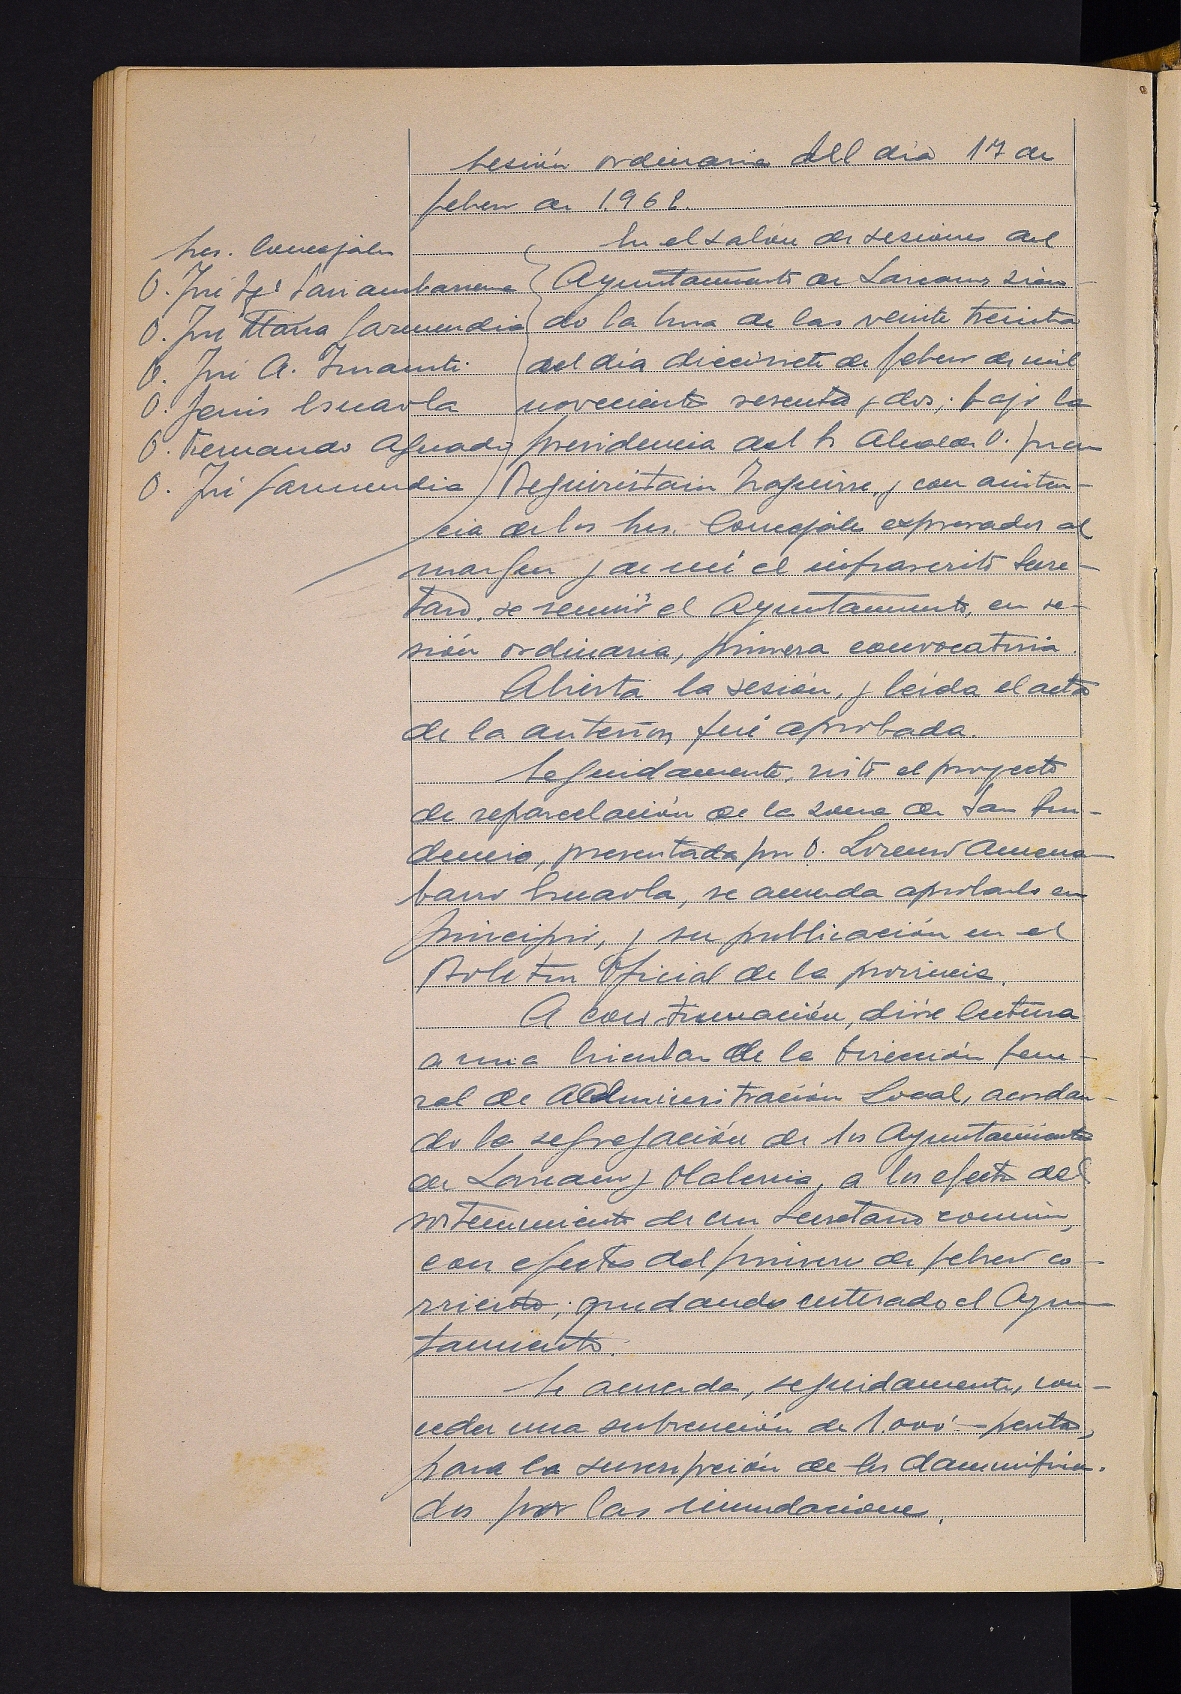 Sesión ordinaria del día 17 de
febrero de 1.962.
Sres. Concejales
D. José Igº Sarriambarrena
D. José María Garmendia
D. José A. Imanti
D. Jenis Esnaola
D. Fernando Aguado
D. José Garmendia
En el salón de sesiones del
Ayuntamiento de Lazcano sien-
do la hora de las veinte treinta
del día diecisiete de febrero de mil
novecientos sesenta y dos; bajo la
presidencia del Sr Alcalde D. Juan
Aseguinolaza Izaguirre, y con asisten-
cia de los Sres. Concejales expresados al
margen y de mí el infrascrito Secre-
tario, se reunió el Ayuntamiento, en se-
sión ordinaria, primera convocatoria.
Abierta la sesión, y leída el acta
de la anterior fué aprobada.
Seguidamente, visto el proyecto
de reparcelación de la zona de San Pru-
dencio, presentada por D. Lorenzo Amena-
barro Esnaola, se acuerda aprobarlo en
principio, y su publicación en el
Boletín Oficial de la provincia.
A continuación, dióse lectura
a una Circular de la Dirección Gene-
ral de Administración Local, acordan-
do la segregación de los Ayuntamientos
de Lazcano y Olaberria, a los efectos del
sostenimiento de un Secretario común,
con efectos del primero de febrero co-
rriente; quedando enterado el Ayun-
tamiento.
Se acuerda, seguidamente, con-
ceder una subvención de 1.000'- pesetas,
para la suscripción de los damnifica-
dos por las inundaciones.